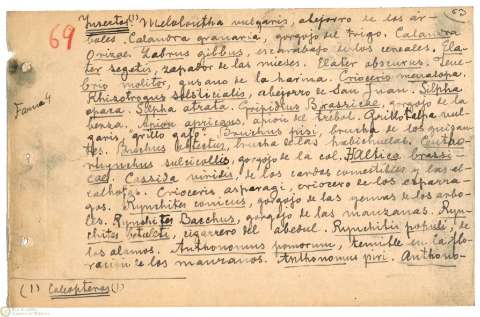 63
69
Insectos(1) Melolontha vulgaris, abejorro de los ár-
boles. Calandra granaria, gorgojo del trigo. Calandra
Orizae. Zabrus gibbus, escarabajo de los cereales, Ela-
ter segetis, zapador de las mieses. Elater obscurus. Tene-
brio molitor, gusano de la harina. Crioceris melanopa.
Rhisotrogus solsticialis, abejorro de San Juan. Silpha
Fauna 4
opaca. Silpha atrata. Gripidius Brassicae, gorgojo de la
berza. Apion apricans, apion del trebol. Grillotalpa vul-
garis, grillo gato. Bruchus pisi, brucha de los guisan-
tes. Bruchus de las habichuelas. Ceuto-
rhynchus sulcicollis, gorgojo de la col. Haltica brassi-
cae. Cassida viridis, de los cardos comestibles y las al-
cachofas. Crioceris asparagi, criocero de los esparra-
gos. Rynchites conicus, gorgojo de las yemas de los arbo-
les. Rynchites Bacchus, gorgojo de las manzanas. Ryn-
chites betuleti, cigarrero del abedul. Rynchitis populi, de
los alamos. Anthonomus pomorum, temible en la flo-
ración de los manzanos. Anthonomus piri. Anthono-
(1) Coleopteros(1)